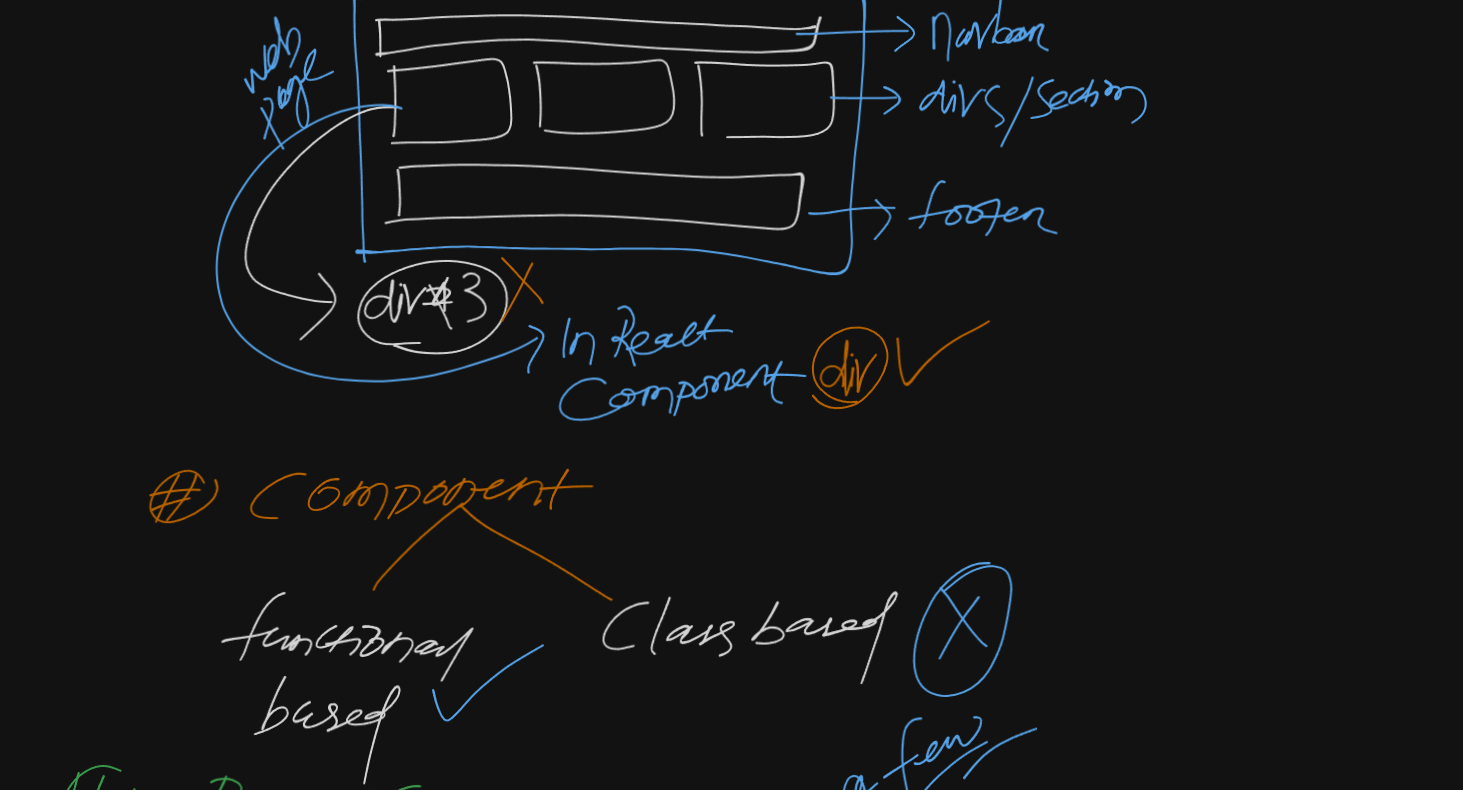 web
page
Navbar
divs/section
footer
div*3
In React
Component div
# Component
functional
based
Class based
few